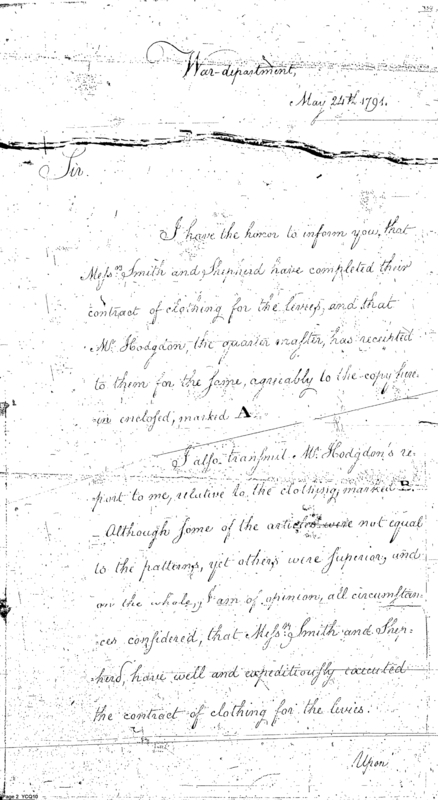 War-department,
May 24th 1791.
Sir.
I have the honor to inform you, that
Messrs Smith and Shepherd have completed their
contract of clothing for the levies, and that
Mr. Hodgdon, the quarter master, has receipted
to them for the same, agreeably to the copy here-
in enclosed, marked A.
I also transmit Mr. Hodgdon's re-
port to me, relative to the clothing, marked B.
- Although some of the articles were not equal
to the patterns, yet others were superior, and
on the whole, I am of opinion, all circumstan-
ces considered, that Messrs Smith and Shep-
herd, have well and expeditiously executed
the contract of clothing for the levies.
Upon